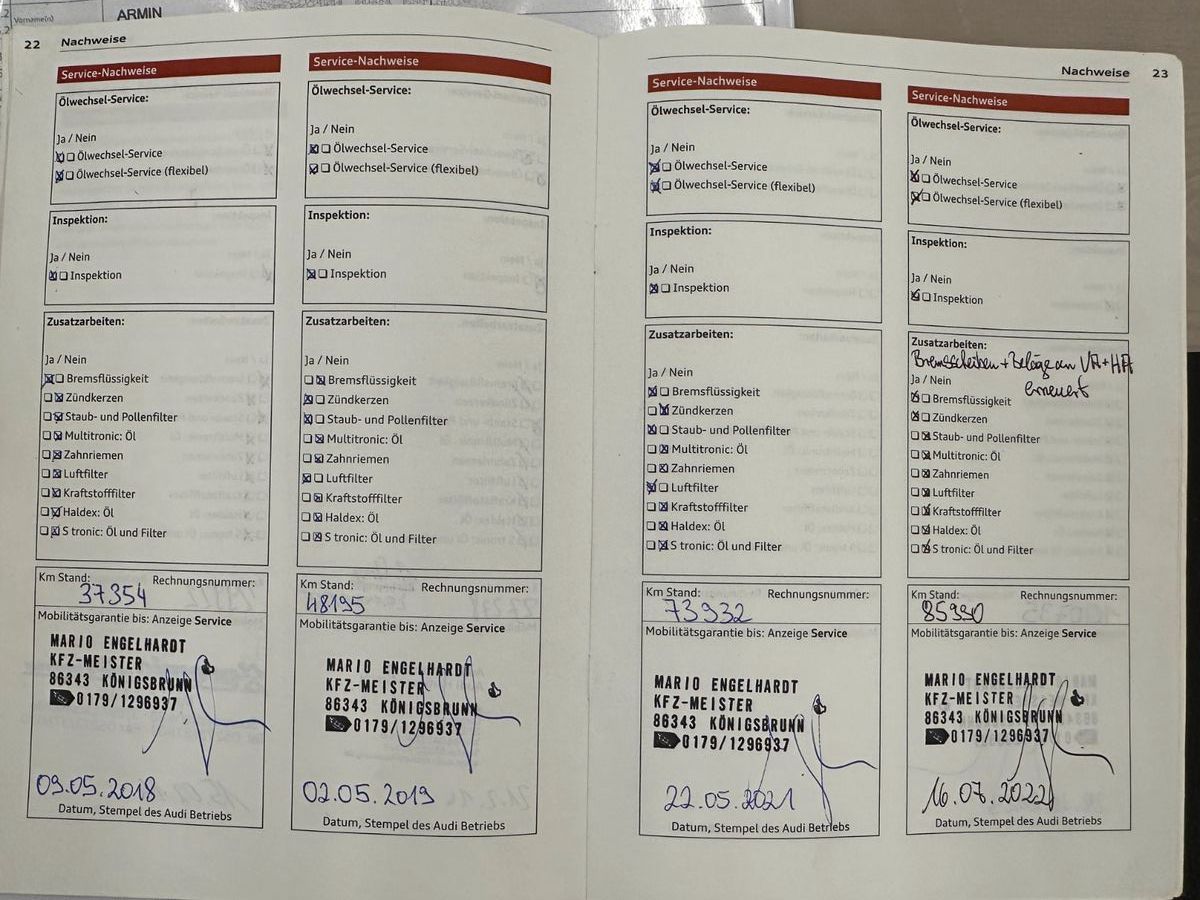 Vorname(n)
ARMIN
22 Nachweise
Service-Nachweise
Ölwechsel-Service:
Ja / Nein
Ölwechsel-Service
Ölwechsel-Service (flexibel)
Inspektion:
Ja / Nein
Inspektion
Zusatzarbeiten:
Ja / Nein
Bremsflüssigkeit
Zündkerzen
Staub- und Pollenfilter
Multitronic: Öl
Zahnriemen
Luftfilter
Kraftstofffilter
Haldex: Öl
S tronic: Öl und Filter
Km Stand: Rechnungsnummer:
37354
Mobilitätsgarantie bis: Anzeige Service
MARIO ENGELHARDT
KFZ-MEISTER
86343 KÖNIGSBRUNN
0179/1296937
09.05.2018
Datum, Stempel des Audi Betriebs
Service-Nachweise
Ölwechsel-Service:
Ja / Nein
Ölwechsel-Service
Ölwechsel-Service (flexibel)
Inspektion:
Ja / Nein
Inspektion
Zusatzarbeiten:
Ja / Nein
Bremsflüssigkeit
Zündkerzen
Staub- und Pollenfilter
Multitronic: Öl
Zahnriemen
Luftfilter
Kraftstofffilter
Haldex: Öl
S tronic: Öl und Filter
Km Stand: Rechnungsnummer:
48195
Mobilitätsgarantie bis: Anzeige Service
MARIO ENGELHARDT
KFZ-MEISTER
86343 KÖNIGSBRUNN
0179/1296937
02.05.2019
Datum, Stempel des Audi Betriebs
Nachweise 23
Service-Nachweise
Ölwechsel-Service:
Ja / Nein
Ölwechsel-Service
Ölwechsel-Service (flexibel)
Inspektion:
Ja / Nein
Inspektion
Zusatzarbeiten:
Ja / Nein
Bremsflüssigkeit
Zündkerzen
Staub- und Pollenfilter
Multitronic: Öl
Zahnriemen
Luftfilter
Kraftstofffilter
Haldex: Öl
S tronic: Öl und Filter
Km Stand: Rechnungsnummer:
73932
Mobilitätsgarantie bis: Anzeige Service
MARIO ENGELHARDT
KFZ-MEISTER
86343 KÖNIGSBRUNN
0179/1296937
22.05.2021
Datum, Stempel des Audi Betriebs
Service-Nachweise
Ölwechsel-Service:
Ja / Nein
Ölwechsel-Service
Ölwechsel-Service (flexibel)
Inspektion:
Ja / Nein
Inspektion
Zusatzarbeiten:
Bremsscheiben + Beläge an VA + HA
erneuert
Ja / Nein
Bremsflüssigkeit
Zündkerzen
Staub- und Pollenfilter
Multitronic: Öl
Zahnriemen
Luftfilter
Kraftstofffilter
Haldex: Öl
S tronic: Öl und Filter
Km Stand: Rechnungsnummer:
85990
Mobilitätsgarantie bis: Anzeige Service
MARIO ENGELHARDT
KFZ-MEISTER
86343 KÖNIGSBRUNN
0179/1296937
16.07.2022
Datum, Stempel des Audi Betriebs